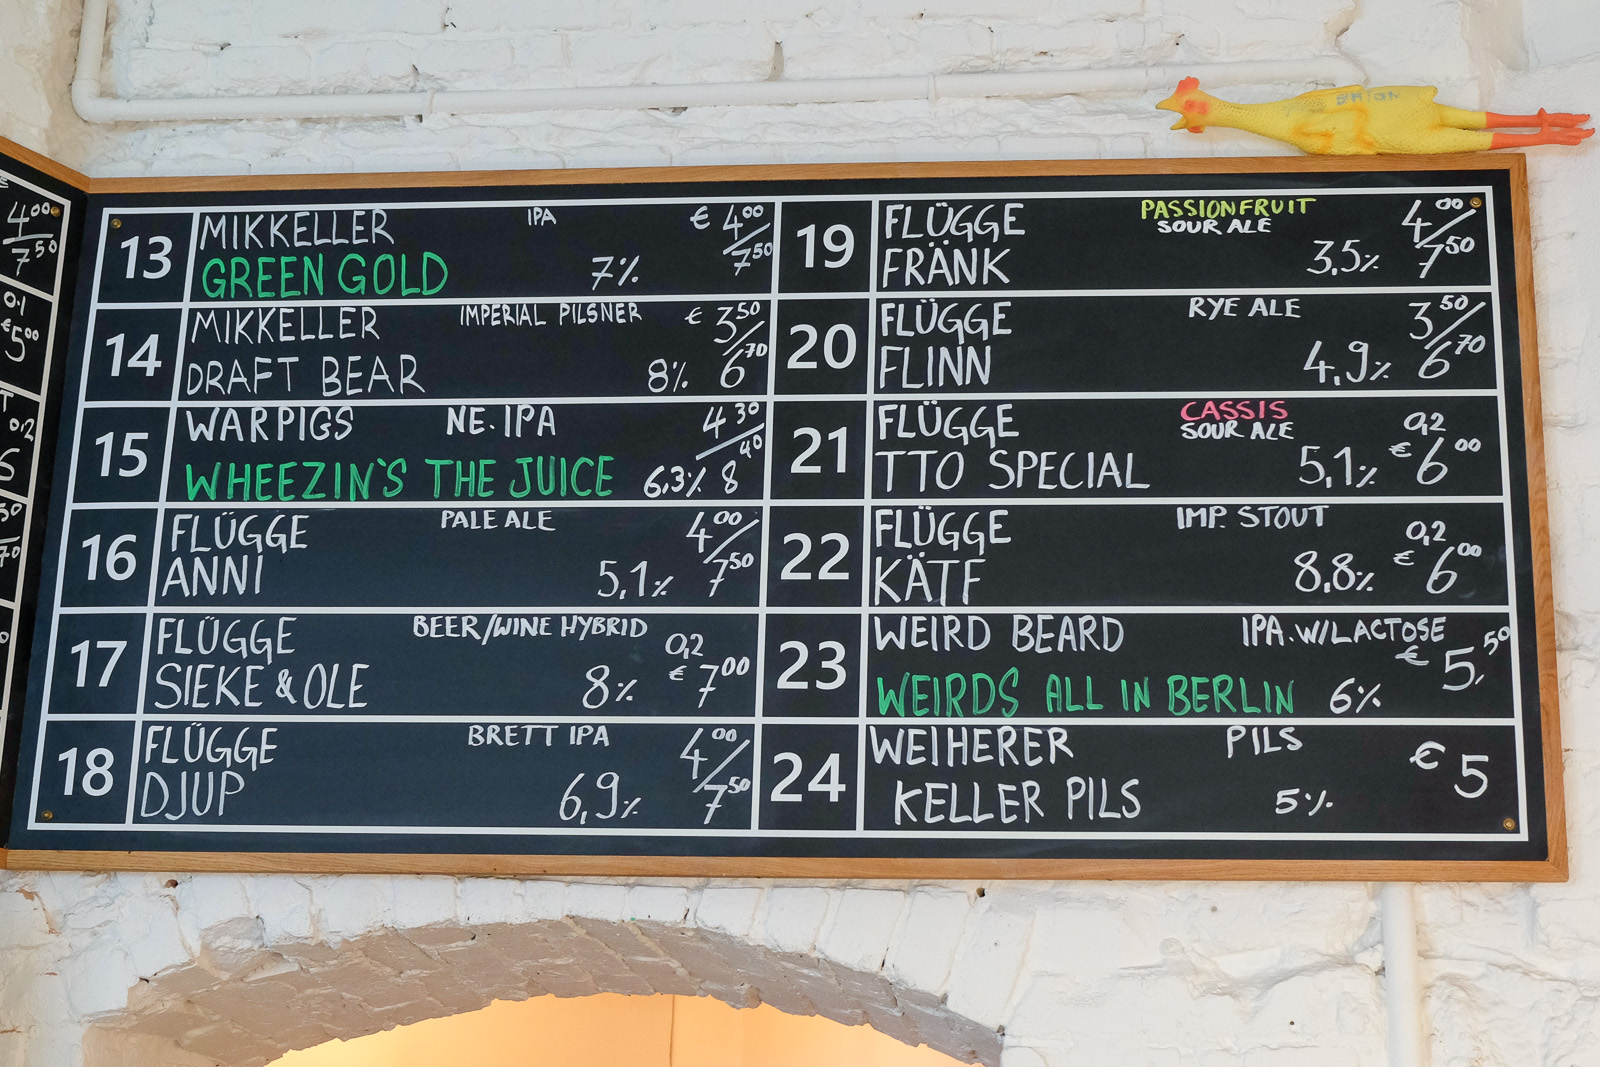 4⁰⁰
7⁵⁰
0.1
€5⁰⁰
0,2
13 MIKKELLER IPA € 4⁰⁰/7⁵⁰
GREEN GOLD 7%
14 MIKKELLER IMPERIAL PILSNER € 3⁵⁰/6⁷⁰
DRAFT BEAR 8%
15 WARPIGS NE. IPA 4³⁰/8⁴⁰
WHEEZIN'S THE JUICE 6,3%
16 FLÜGGE PALE ALE 4⁰⁰/7⁵⁰
ANNI 5,1%
17 FLÜGGE BEER/WINE HYBRID 0,2
SIEKE & OLE 8% € 7⁰⁰
18 FLÜGGE BRETT IPA 4⁰⁰/7⁵⁰
DJUP 6,9%
19 FLÜGGE PASSIONFRUIT 4⁰⁰/7⁵⁰
SOUR ALE
FRÄNK 3,5%
20 FLÜGGE RYE ALE 3⁵⁰/6⁷⁰
FLINN 4,9%
21 FLÜGGE CASSIS 0,2
SOUR ALE
TTO SPECIAL 5,1% € 6⁰⁰
22 FLÜGGE IMP. STOUT 0,2
KÄTF 8,8% € 6⁰⁰
23 WEIRD BEARD IPA. W/LACTOSE € 5,⁵⁰
WEIRDS ALL IN BERLIN 6%
24 WEIHERER PILS € 5
KELLER PILS 5%